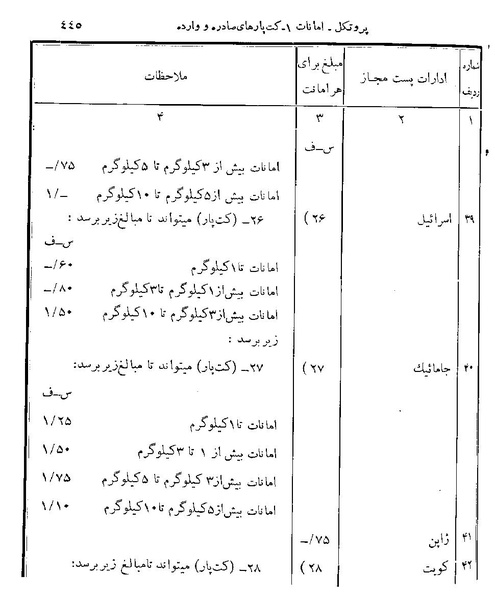 پروتکل ـ امانات ۱ـ کت‌پارهای صادره و وارده ۴۴۵
شماره ردیف ادارات پست مجاز مبلغ برای هر امانت ملاحظات
۱ ۲ ۳ ۴
س‌ـ‌ف
امانات بیش از ۳کیلوگرم تا ۵کیلوگرم ۷۵/ـ
امانات بیش از۵کیلوگرم تا ۱۰کیلوگرم ـ/۱
۳۹ اسرائیل ۲۶) ۲۶ـ (کت‌پار) میتواند تا مبالغ زیر برسد :
س‌ـ‌ف
امانات تا۱کیلوگرم ۶۰/ـ
امانات بیش‌از۱کیلوگرم تا۳کیلوگرم ۸۰/ـ
امانات بیش‌از۳کیلوگرم تا ۱۰کیلوگرم ۱/۵۰
زیر برسد :
۴۰ جامائیک ۲۷) ۲۷ـ (کت‌پار) میتواند تا مبالغ زیر برسد:
س‌ـ‌ف
امانات تا۱کیلوگرم ۱/۲۵
امانات بیش از ۱ تا ۳کیلوگرم ۱/۵۰
امانات بیش‌از۳ کیلوگرم تا ۵کیلوگرم ۱/۷۵
امانات بیش‌از۵کیلوگرم تا۱۰کیلوگرم ۱/۱۰
۴۱ ژاپن ۷۵/ـ
۴۲ کویت ۲۸) ۲۸ـ (کت‌پار) میتواند تامبالغ زیر برسد: